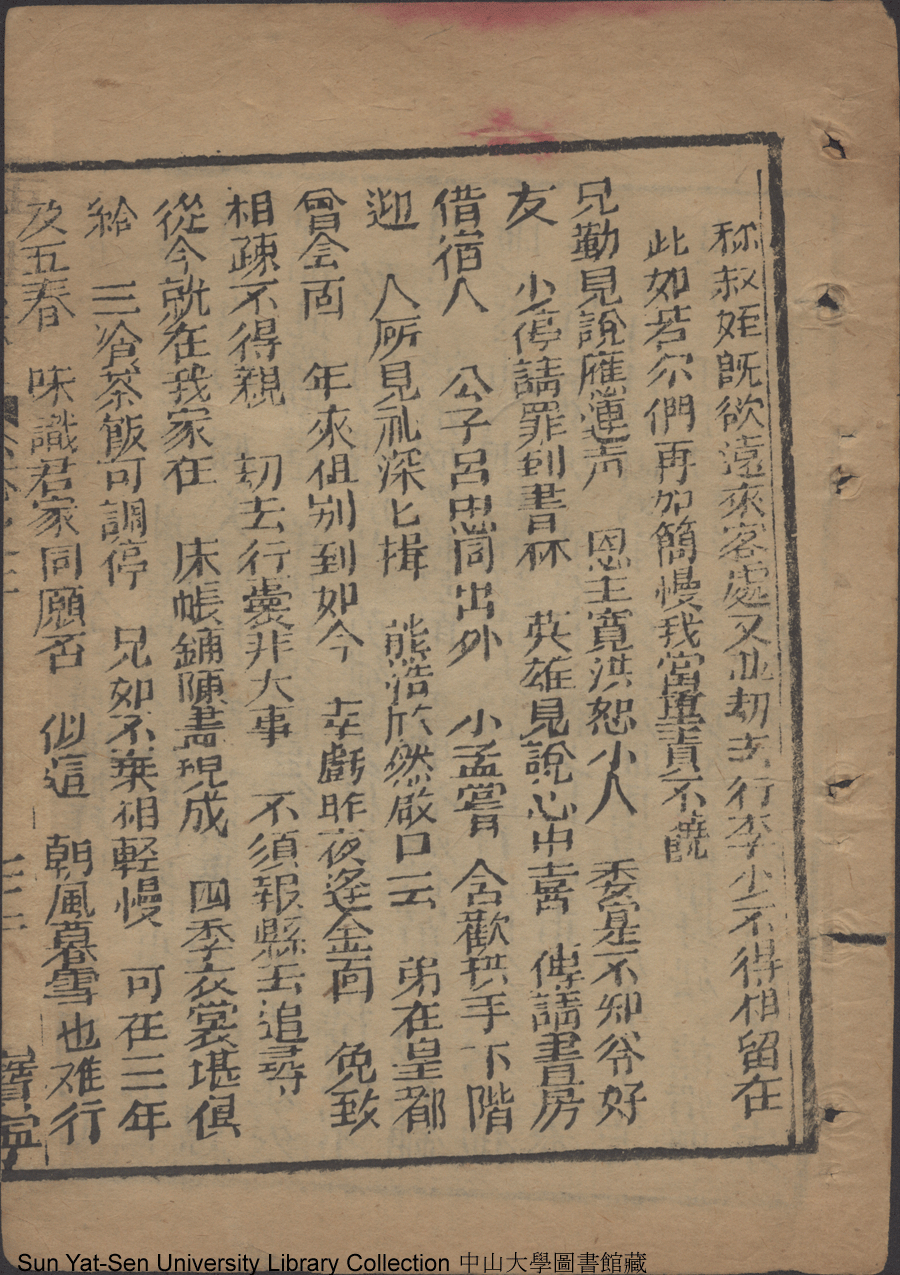 称叔姪既欲遠來客處又並劫去行李少不得相留在
此如若尔們再如簡慢我當重責不饒
兄勤見說應連声 恩主寬洪恕小人 委寔不知爷好
友 少停請罪到書林 英雄見說心中喜 傳請書房
借宿人 公子呂忠同出外 小孟嘗 含歡拱手下階
迎 人所見礼深匕揖 熊浩欣然啟口云 弟在皇都
曾会面 年來但别到如今 幸虧昨夜逢金面 免致
相疎不得親 劫去行囊非大事 不須報縣去追尋
從今就在我家在 床帳鋪陳盡現成 四季衣裳堪俱
給 三飡茶飯可調停 兄如不棄相輕慢 可在三年
及五春 味識君家同願否 似這 朝風暮雪也难行
Sun Yat-Sen University Library Collection 中山大學圖書館藏